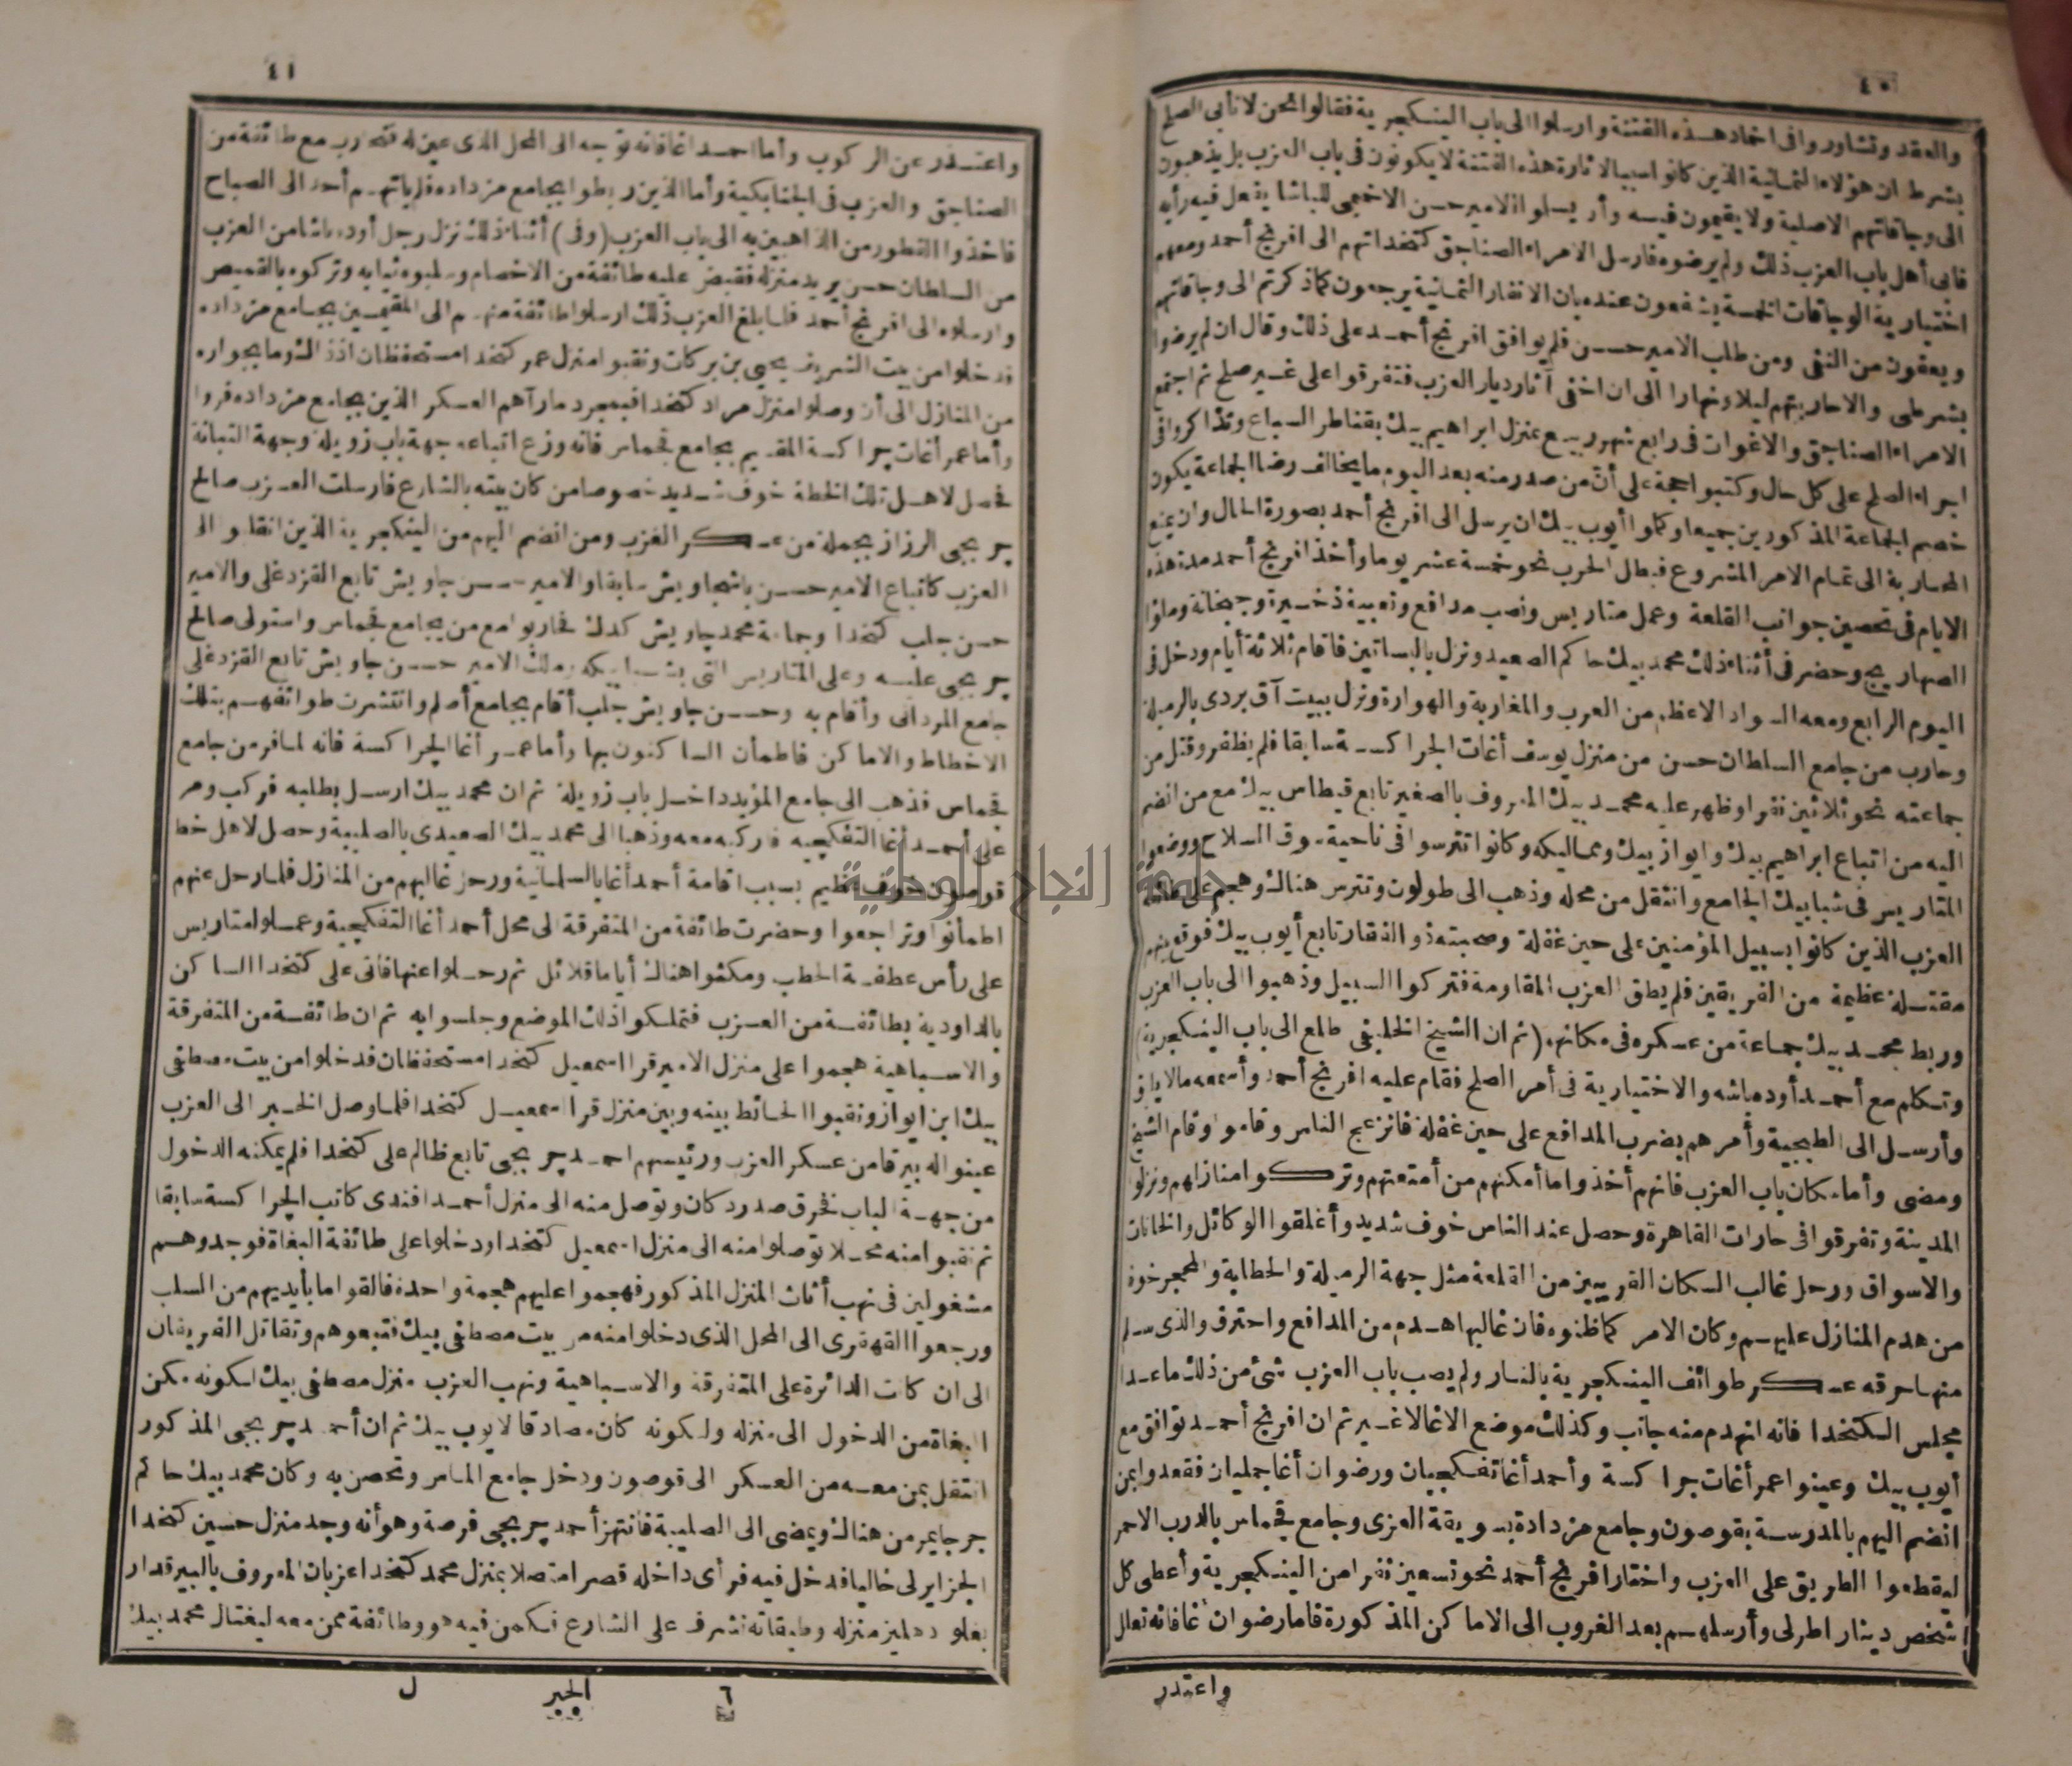 ٤٠
والعقد وتشاوروا فى اخماد هذه الفتنة وارسلوا الى باب الينكجرية فقالوا نحن لا نأبى الصلح
بشرط ان هؤلاء الثمانية الذين كانوا سببا لاثارة هذه الفتنة لا يكونون فى باب العزب بل يذهبون
الى وجاقاتهم الاصلية ولا يقيمون فيه وأن يسلوا الامير حسن الاخميمى للباشا يفعل فيه رأيه
فابى أهل باب العزب ذلك ولم يرضوه فارسل الامراء الصناجق كتخداتهم الى افرنج أحمد ومعهم
اختيارية الوجاقات الخمسة يشفعون عنده بان الانفار الثمانية يرجعون كما ذكرتم الى وجاقاتهم
ويعفون من النفى ومن طلب الامير حسن فلم يوافق افرنج أحمد على ذلك وقال ان لم يرضوا
بشرطى والا حاربتهم ليلا ونهارا الى ان اخفى آثار ديار العزب فتفرقوا على غير صلح ثم اجتمع
الامراء الصناجق والاغوات فى رابع شهر ربيع بمنزل ابراهيم بيك بقناطر السباع وتذاكروا فى
اجراء الصلح على كل حال وكتبوا حجة على أن من صدر منه بعد اليوم ما يخالف رضا الجماعة يكون
خصم الجماعة المذكورين جميعا وكلموا أيوب بيك ان يرسل الى افرنج أحمد بصورة الحال وان يمنع
المحاربة الى تمام الامر المشروع فبطل الحرب نحو خمسة عشر يوما وأخذ افرنج أحمد مدة هذه
الايام فى تحصين جوانب القلعة وعمل متاريس ونصب مدافع وتعبية ذخيرة وجبخانة وملؤا
الصهاريج وحضر فى أثناء ذلك محمد بيك حاكم الصعيد ونزل بالبساتين فاقام ثلاثة أيام ودخل فى
اليوم الرابع ومعه السواد الاعظم من العرب والمغاربة والهوارة ونزل ببيت آق بردى بالرميلة
وحارب من جامع السلطان حسن من منزل يوسف أغات الجراكسة سابقا فلم يظفر وقتل من
جماعته نحو ثلاثين نفرا وظهر عليه محمد بيك المعروف بالصغير تابع قيطاس بيك مع من انضم
اليه من اتباع ابراهيم بيك وايواز بيك ومماليكه وكانوا تترسوا فى ناحية سوق السلاح ووضعوا
المتاريس فى شبابيك الجامع وانتقل من محله وذهب الى طولون وتترس هناك وهجم على طائفة
العزب الذين كانوا بسبيل المؤمنين على حين غفلة وصحبته ذو الفقار تابع أيوب بيك فوقع بينهم
مقتلة عظيمة من الفريقين فلم يطق العزب المقاومة فتركوا السبيل وذهبوا الى باب العزب
وربط محمد بيك جماعة من عسكره فى مكانهم (ثم ان الشيخ الخليفى طلع الى باب الينكجرية)
وتكلم مع أحمد أوده باشه والاختيارية فى أمر الصلح فقام عليه افرنج أحمد وأسمعه مالا يليق
وأرسل الى الطبجية وأمرهم بضرب المدافع على حين غفلة فانزعج الناس وقاموا وقام الشيخ
ومضى وأما سكان باب العزب فانهم أخذوا ما أمكنهم من أمتعتهم وتركوا منازلهم ونزلوا
المدينة وتفرقوا فى حارات القاهرة وحصل عند الناس خوف شديد وأغلقوا الوكائل والخانات
والاسواق ورحل غالب السكان القريبين من القلعة مثل جهة الرميلة والحطابة والمحجر خوفا
من هدم المنازل عليهم وكان الامر كما ظنوه فان غالبها هدم من المدافع واحترق والذى سلم
منها حرقه عسكر طوائف الينكجرية بالنار ولم يصب باب العزب شئ من ذلك ما عدا
مجلس الكتخدا فانه انهدم منه جانب وكذلك موضع الاغا لا غير ثم ان افرنج أحمد توافق مع
أيوب بيك وعينوا عمر أغات جراكسة وأحمد أغا تفكجيان ورضوان أغا جمليان فقعدوا بمن
انضم اليهم بالمدرسة بقوصون وجامع مزدادة بسويقة العزى وجامع قجماس بالدرب الاحمر
ليقطعوا الطريق على العزب واختار افرنج أحمد نحو تسعين نفرا من الينكجرية وأعطى كل
شخص دينارا طرلى وأرسلهم بعد الغروب الى الاماكن المذكورة فاما رضوان أغا فانه تعلل
واعتذر
٤١
واعتذر عن الركوب وأما احمد اغا فانه توجه الى المحل الذى عين له فتحارب مع طائفة من
الصناجق والعزب فى الجنابكية وأما الذين ربطوا بجامع مزداده فلم ياتهم أحد الى الصباح
فاخذوا الفطور من الذاهبين به الى باب العزب (وفى) أثناء ذلك نزل رجل أوده باشا من العزب
من السلطان حسن يريد منزله فقبض عليه طائفة من الاخصام وسلبوه ثيابه وتركوه بالقميص
وارسلوه الى افرنج أحمد فلما بلغ العزب ذلك ارسلوا طائفة منهم الى المقيمين بجامع مزداده
فدخلوا من بيت الشريف يحيى بن بركات ونقبوا منزل عمر كتخدا مستحفظان اذ ذاك وما بجواره
من المنازل الى أن وصلوا منزل مراد كتخدا فبمجرد مارآهم العسكر الذين بجامع مزداده فروا
وأما عمر أغات جراكسة المقيم بجامع قجماس فانه وزع اتباعه جهة باب زويلة وجهة التبانة
فحصل لاهل تلك الخطة خوف شديد خصوصا من كان بيته بالشارع فارسلت العزب صالح
جربجى الرزاز بجملة من عسكر العزب ومن انضم اليهم من الينكجرية الذين انقلبوا الى
العزب كاتباع الامير حسن باشجاويش سابقا والامير حسن جاويش تابع القزدغلى والامير
حسن جلب كتخدا وجماعة محمد جاويش كدك فحاربوا مع من بجامع قجماس واستولى صالح
جربجى عليه وعلى المتاريس التى بشبابيكه وملك الامير حسن جاويش تابع القزدغلى
جامع المردانى وأقام به وحسن جاويش جلب أقام بجامع أصلم وانتشرت طوائفهم بتلك
الاخطاط والاماكن فاطمأن الساكنون بها وأما عمر أغا الجراكسة فانه لما فر من جامع
قجماس فذهب الى جامع المؤيد داخل باب زويلة ثم ان محمد بيك ارسل يطلبه فركب ومر
على أحمد أغا التفكجيه فاركبه معه وذهبا الى محمد بيك الصعيدى بالصليبة وحصل لاهل خط
قوصون خوف عظيم بسبب اقامة أحمد أغا بالسلمانية ورحل غالبهم من المنازل فلما رحل عنهم
اطمأنوا وتراجعوا وحضرت طائفة من المتفرقة الى محل أحمد أغا التفكجية وعملوا متاريس
على رأس عطفة الحطب ومكثوا هناك أياما قلائل ثم رحلوا عنها فاتى على كتخدا الساكن
بالداودية بطائفة من العزب فتملكوا ذلك الموضع وجلسوا به ثم ان طائفة من المتفرقة
والاسباهية هجموا على منزل الامير قرا اسمعيل كتخدا مستحفظان فدخلوا من بيت مصطفى
بيك ابن ايواز ونقبوا الحائط بينه وبين منزل قرا اسمعيل كتخدا فلما وصل الخبر الى العزب
عينوا له بيرقا من عسكر العزب ورئيسهم احمد جربجى تابع ظالم على كتخدا فلم يمكنه الدخول
من جهة الباب فخرق صدر دكان وتوصل منه الى منزل أحمد افندى كاتب الجراكسة سابقا
ثم نقبوا منه محلا توصلوا منه الى منزل اسمعيل كتخدا ودخلوا على طائفة البغاة فوجدوهم
مشغولين فى نهب أثاث المنزل المذكور فهجموا عليهم هجمة واحدة فالقوا ما بأيديهم من السلب
ورجعوا القهقرى الى المحل الذى دخلوا منه من بيت مصطفى بيك فتبعوهم وتقاتل الفريقان
الى ان كانت الدائرة على المتفرقة والاسباهية ونهب العزب منزل مصطفى بيك لكونه مكن
البغاة من الدخول الى منزله ولكونه كان مصادقا لايوب بيك ثم ان أحمد جربجى المذكور
انتقل بمن معه من العسكر الى قوصون ودخل جامع الماس وتحصن به وكان محمد بيك حاكم
جرجا يمر من هناك ويمضى الى الصليبة فانتهز أحمد جربجى فرصة وهو أنه وجد منزل حسين كتخدا
الجزايرلى خاليا فدخل فيه فرأى داخله قصرا متصلا بمنزل محمد كتخدا عزبان المعروف بالبيرقدار
يعلو دهليز منزله وطبقاته تشرف على الشارع فكمن فيه هو وطائفة ممن معه ليغتال محمد بيك
٦ الجبر ل
جامعة النجاح الوطنية